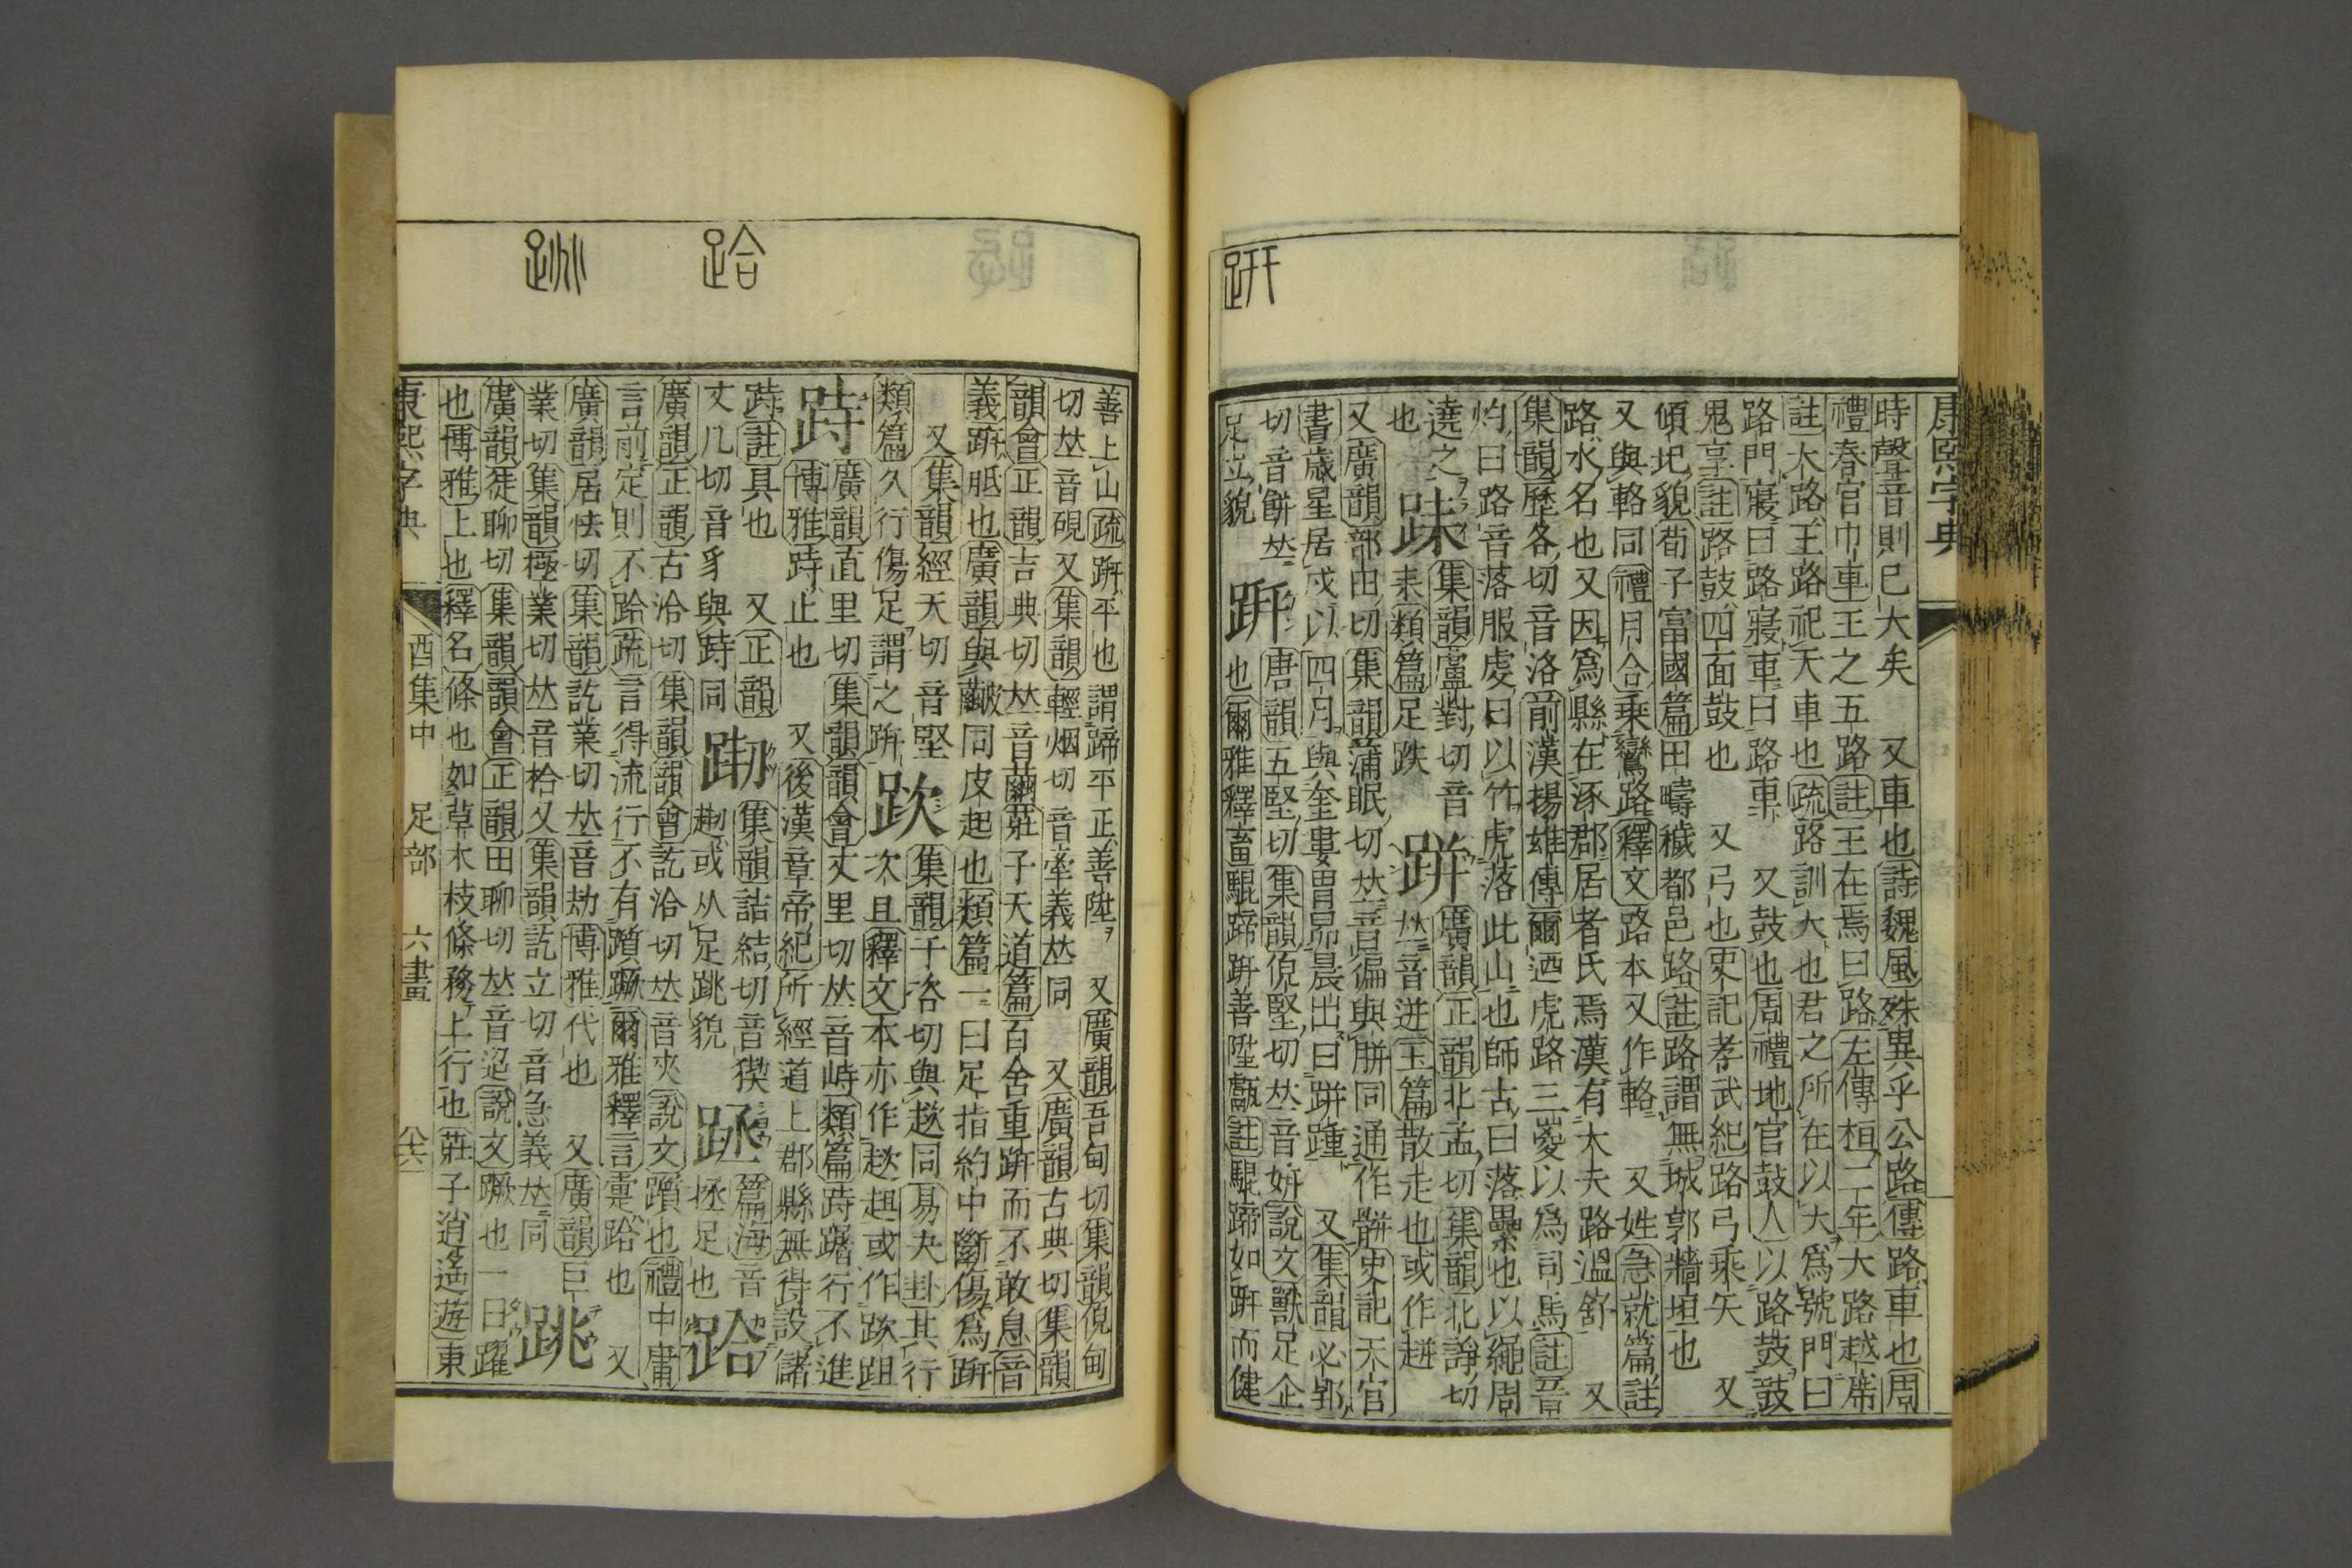 康熙字典
趼
時聲音則已大矣 又車也詩魏風殊異乎公路傳路車也周
禮春官巾車王之五路註王在焉曰路左傳桓二年大路越席
註大路玉路祀天車也疏路訓大也君之所在以大爲號門曰
路門寢曰路寢車曰路車 又鼓也周禮地官鼓人以路鼓鼓
鬼享註路鼓四面鼓也 又弓也史記孝武紀路弓乘矢 又
傾圯貌荀子富國篇田疇穢都邑路註路謂無城郭牆垣也
又與輅同禮月令乗鸞路釋文路本又作輅 又姓急就篇註
路水名也又因爲縣在涿郡居者氏焉漢有大夫路溫舒 又
集韻歷各切音洛前漢揚雄傳爾迺虎路三嵏以爲司馬註晉
灼曰路音落服虔曰以竹虎落此山也師古曰落纍也以繩周
遶之 跊 集韻盧對切音 跰 廣韻正韻北孟切集韻北諍切
也 耒類篇足跌 𠀤音迸玉篇散走也或作趀
又廣韻部田切集韻蒲眠切𠀤音徧與胼同通作骿史記天官
書歲星居戌以四月與奎婁胃昴晨出曰跰踵 又集韻必郢
切音餅𠀤 趼 唐韻五堅切集韻倪堅切𠀤音姸說文獸足企
足立貌 也爾雅釋畜騉蹄趼善陞甗註騉蹄如趼而健
跲
跳
善上山疏趼平也謂蹄平正善陞 又廣韻吾甸切集韻倪甸
切𠀤音硯又集韻輕烟切音牽義𠀤同 又廣韻古典切集韻
韻會正韻吉典切𠀤音繭莊子天道篇百舍重趼而不敢息音
義趼胝也廣韻與皾同皮起也類篇一曰足指約中斷傷爲趼
又集韻經天切音堅 跌 集韻千咨切與趑同易夬卦其行
類篇久行傷足謂之趼 次且釋文本亦作趑趄或作跌跙
跱 廣韻直里切集韻韻會丈里切𠀤音峙類篇跱躇行不進
博雅跱止也 又後漢章帝紀所經道上郡縣無得設儲
跱註具也 又正韻 集韻詰結切音猰 篇海音
丈几切音豸與峙同 趣或从足跳貌 拯足也 跲
廣韻正韻古洽切集韻韻會訖洽切𠀤音夾說文躓也禮中庸
言前定則不跲疏言得流行不有躓蹶爾雅釋言疐跲也 又
廣韻居怯切集韻訖業切𠀤音劫博雅代也 又廣韻巨
業切集韻極業切𠀤音拾又集韻訖立切音急義𠀤同 跳
廣韻徒聊切集韻韻會正韻田聊切𠀤音迢說文蹶也一曰躍
也博雅上也釋名條也如草木枝條務上行也莊子逍遙遊東
康熙字典 酉集中 足部 六畫 八六